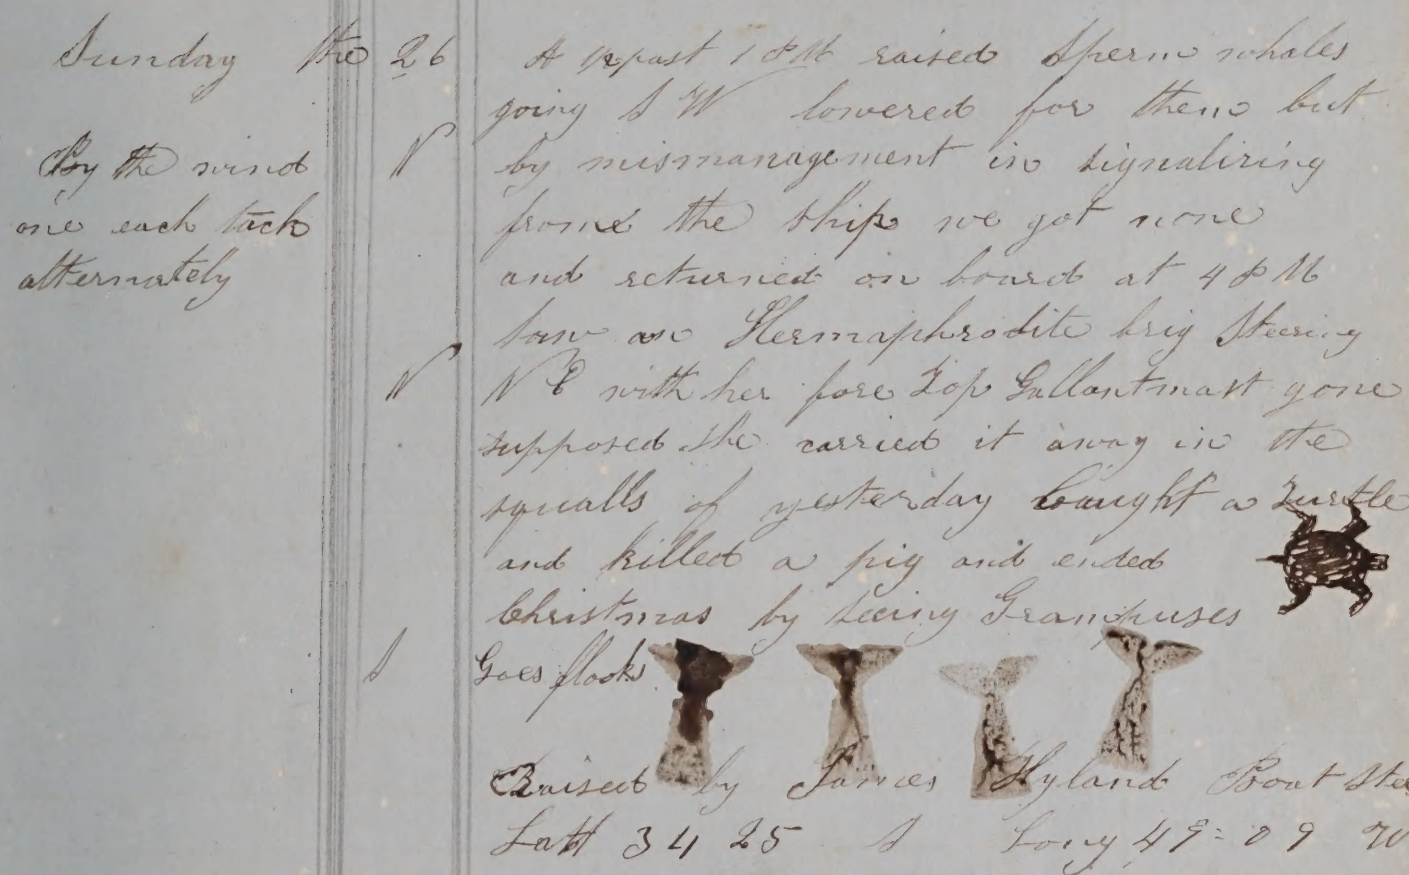 Sunday the 26 A ½ past 1 P M raised Sperm whales
going S W lowered for them but
By the wind N by mismanagement in signalizing
one each tack from the ship we got none
alternately and returned on board at 4 P M
saw an Hermaphrodite brig Steering
N N E with her fore Top Gallantmast gone
supposed she carried it away in the
squalls of yesterday Caught a Turtle
and killed a pig and ended
Christmas by seeing Grampuses
S Goes flooks
Raised by James Hyland Boat Stee
Latt 34 25 S Long 49=09 W